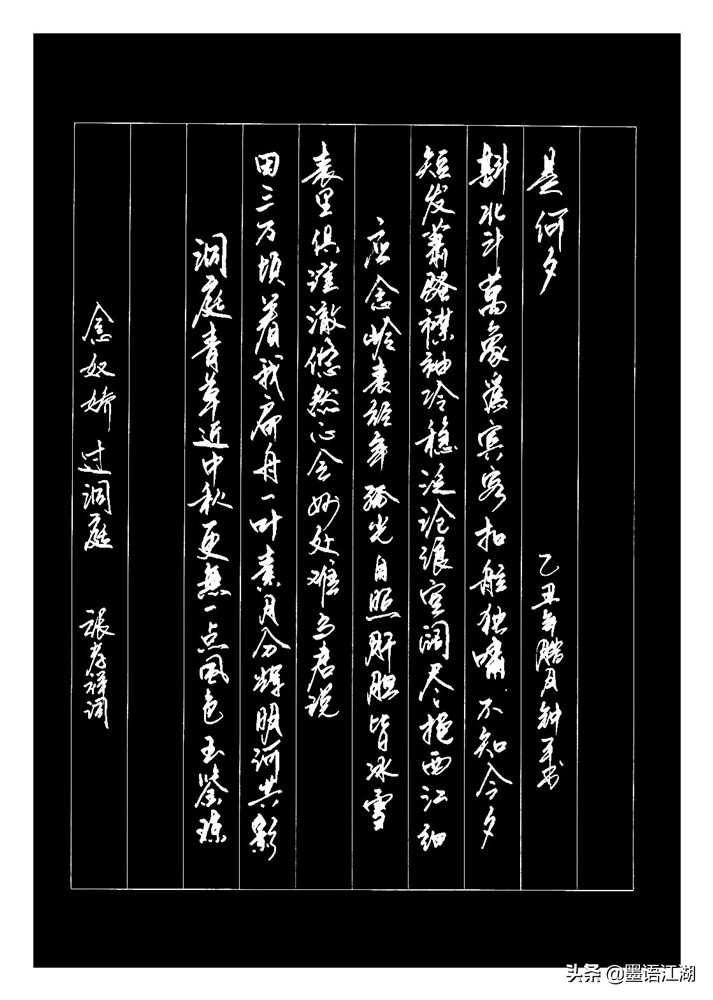 念奴娇 过洞庭 張孝祥词
洞庭青草近中秋更無一点風色玉鉴琼
田三万頃着我扁舟一叶素月分輝明河共影
表里俱澄澈悠然心会妙处难与君说
应念岭表经年孤光自照肝胆皆冰雪
短发萧骚襟袖冷稳泛沧浪空阔尽挹西江细
斟北斗萬象為賓客扣舷独嘯不知今夕
是何夕 乙丑年腊月钟书
头条 @墨语江湖